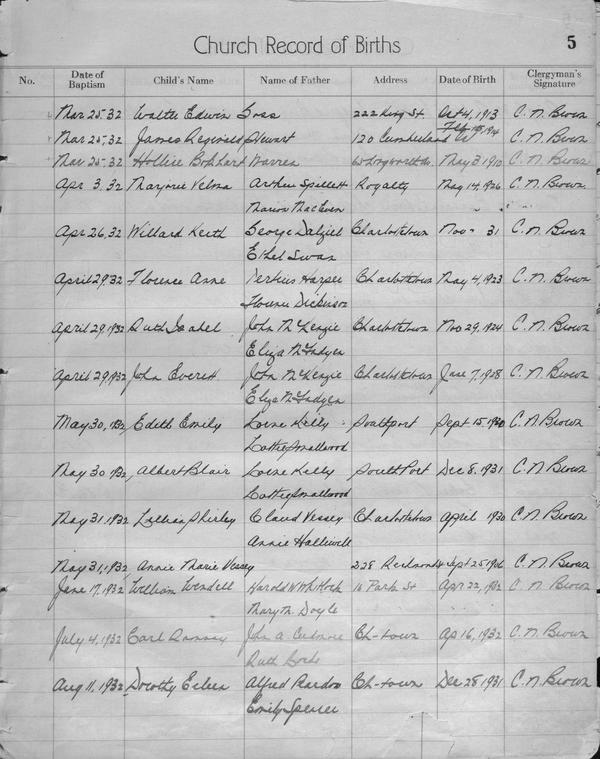 Church Record of Births
5
No. Date of Baptism Child's Name Name of Father Address Date of Birth Clergyman's Signature
Mar 25-32 Walter Edwin Goss 222 King St. Oct 4, 1913 C. N. Brown
Mar 25-32 James Reginald Stewart 120 Cumberland St Feb 1914 C. N. Brown
Mar 25-32 Hollie Warren 60 Longworth Av. May 3 1910 C. N. Brown
Apr 3. 32 Marjorie Velma Arthur Spillett Royalty May 14, 1926 C. N. Brown
Marion MacEwen " " "
Apr 26, 32 Willard Keith George Dalziel Charlottetown Nov - 31 C. N. Brown
Ethel Swan
April 29, 32 Florence Anne Perkins Harper Charlottetown May 4, 1923 C. N. Brown
Florence Dickinson
April 29, 1932 Ruth Isabel John McKenzie Charlottetown Nov 29, 1924 C. N. Brown
Eliza McFadyen
April 29, 1932 John Everett John McKenzie Charlottetown June 7, 1928 C. N. Brown
Eliza McFadyen
May 30, 1932 Edith Emily Lorne Kelly Southport Sept 15, 1930 C. N. Brown
Lottie Smallwood
May 30 1932, Albert Blair Lorne Kelly South Port Dec 8, 1931 C. N. Brown
Lottie Smallwood
May 31, 1932 Lillian Shirley Claud Vessey Charlottetown April 1930 C. N. Brown
Annie Halliwell
May 31, 1932, Annie Marie Vessey 228 Richmond St Sept 25 1906 C. N. Brown
June 17, 1932 William Wendell Harold W. Whitlock 16 Park St Apr 22, 1932 C. N. Brown
Mary M. Doyle
July 4, 1932 Earl John A. Ch-town Ap 16, 1932 C. N. Brown
Ruth
Aug 11, 1932 Dorothy Eileen Alfred Ch-town Dec 28, 1931 C. N. Brown
Emily Spencer